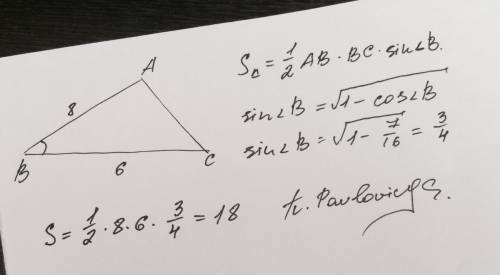 A
8
B
6
C
S△ = 1/2 AB · BC · sin∠B.
sin∠B = √1 - cos∠B
sin∠B = √1 - 7/16 = 3/4
S = 1/2 · 8 · 6 · 3/4 = 18
Pavlovich